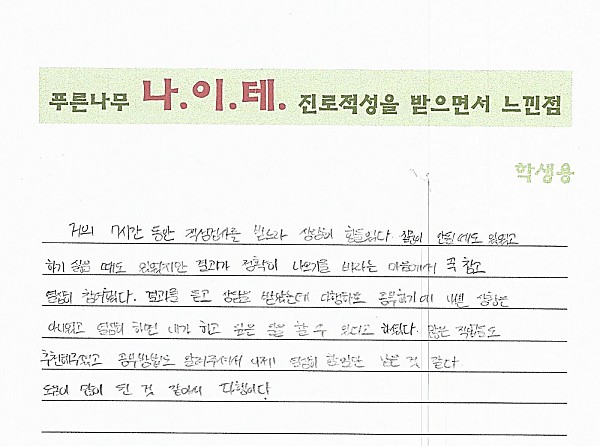 푸른나무 나.이.테. 진로적성을 받으면서 느낀점
학생용
거의 7시간 동안 적성검사를 받느라 상당히 힘들었다. 안될때도 있었고
하기 싫을 때도 있었지만 결과가 정확히 나오기를 바라는 마음에서 꾹 참고
열심히 참여했다. 결과를 듣고 상담을 받았는데 다행히도 공부하기에 나쁜 상황은
아니었고 열심히 하면 내가 하고 싶은 일을 할 수 있다고 하셨다. 많은 직업들도
추천해주셨고 공부방법도 알려주셔서 이제 열심히 할일만 남은 것 같다
도움이 많이 된 것 같아서 다행이다